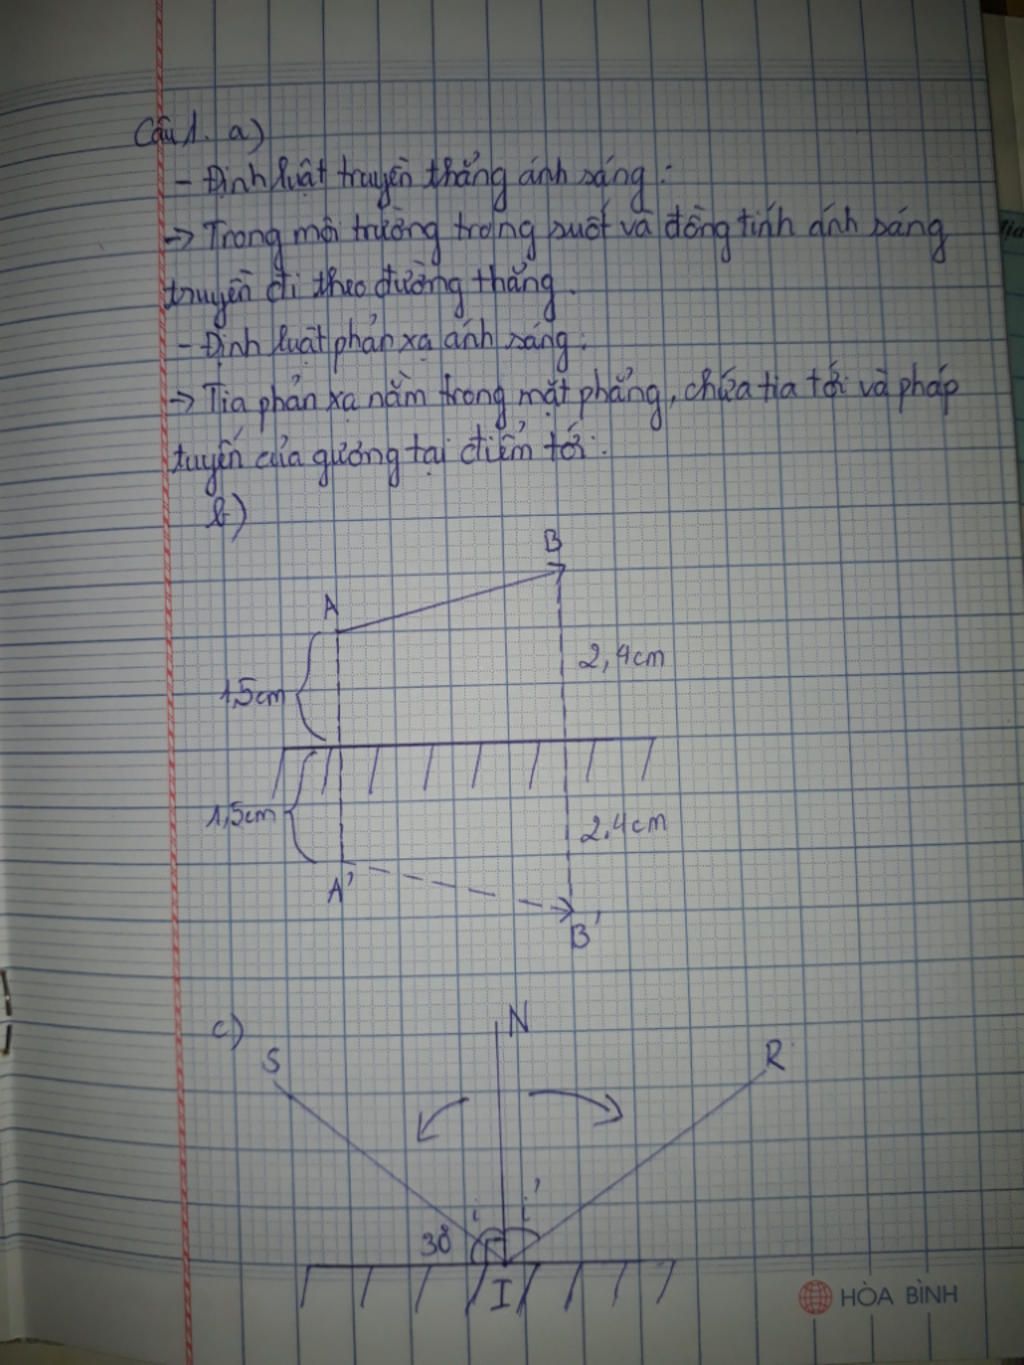 Câu 1. a)
- Định luật truyền thẳng ánh sáng:
-> Trong môi trường trong suốt và đồng tính ánh sáng
truyền đi theo đường thẳng.
- Định luật phản xạ ánh sáng:
-> Tia phản xạ nằm trong mặt phẳng, chứa tia tới và pháp
tuyến của gương tại điểm tới.
b)
B
A
2,4cm
1,5cm
1,5cm
2,4cm
A'
B'
c)
N
S
R
i i'
30°
I
HÒA BÌNH